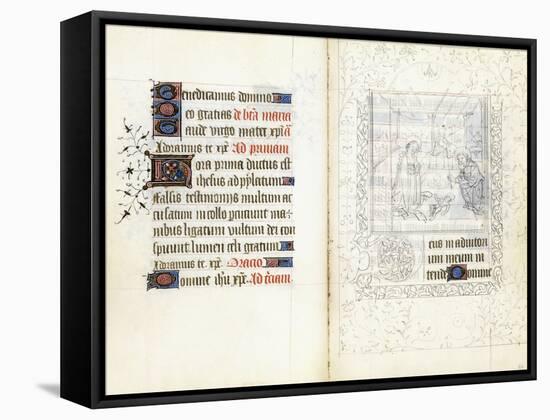 Benedicamus domino
Deo gratias de bta maria
Gaude virgo mater xpi a
Adoramus te xpe Ad primam
Hora prima ductus est
ihesus ad pylatum
falsis testimoniis multum ac
cusatum in collo percutiunt ma-
nibus ligatum vultum dei con
spuunt lumen celi gratum
Adoramus te xpe Oracio
Domine ihu xpe Ad terciam
Deus in adiutori
um meum in
tende Domine